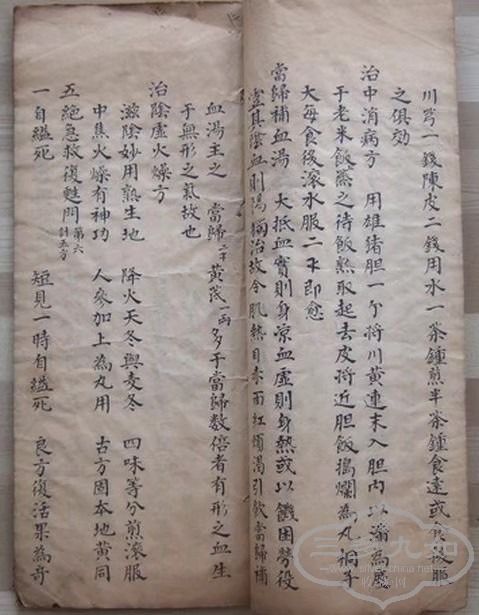 川芎一錢陳皮二錢用水一茶鍾煎半茶鍾食遠或食後服
之俱効
治中消病方　用雄猪胆一个將川黃連末入胆內以滿為度
于老米飯蒸之待飯熟取起去皮將近胆飯搗爛為丸桐子
大每食後滾水服二十即愈
當歸補血湯　大抵血實則身凉血虛則身熱或以饑困勞役
虛其陰血則陽獨治故令肌熱目赤面紅煩渴引飲當歸補
血湯主之　當歸二錢黃茂一両多于當歸数倍者有形之血生
于無形之氣故也
治陰虛火燥方
滋陰妙用熟生地　降火天冬與麦冬　四味等分煎滾服
中焦火燥有神功　人參加上為丸用　古方固本地黃同
五絕急救復甦門 第六 計五方
一自縊死　短見一時自縊死　良方復活果為奇